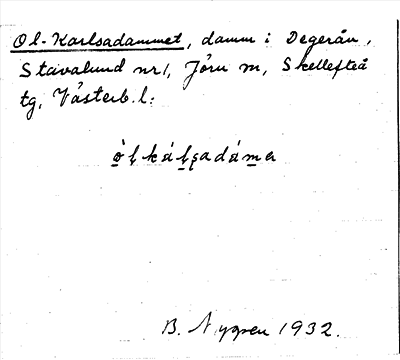 Ol-Karlsadammet, damm i Degerån,
Stavalund nr 1, Jörn sn, Skellefteå
tg, Västerb. l:
ò̱ḷkáḻşadám̱ɐ
B. Nygren 1932.